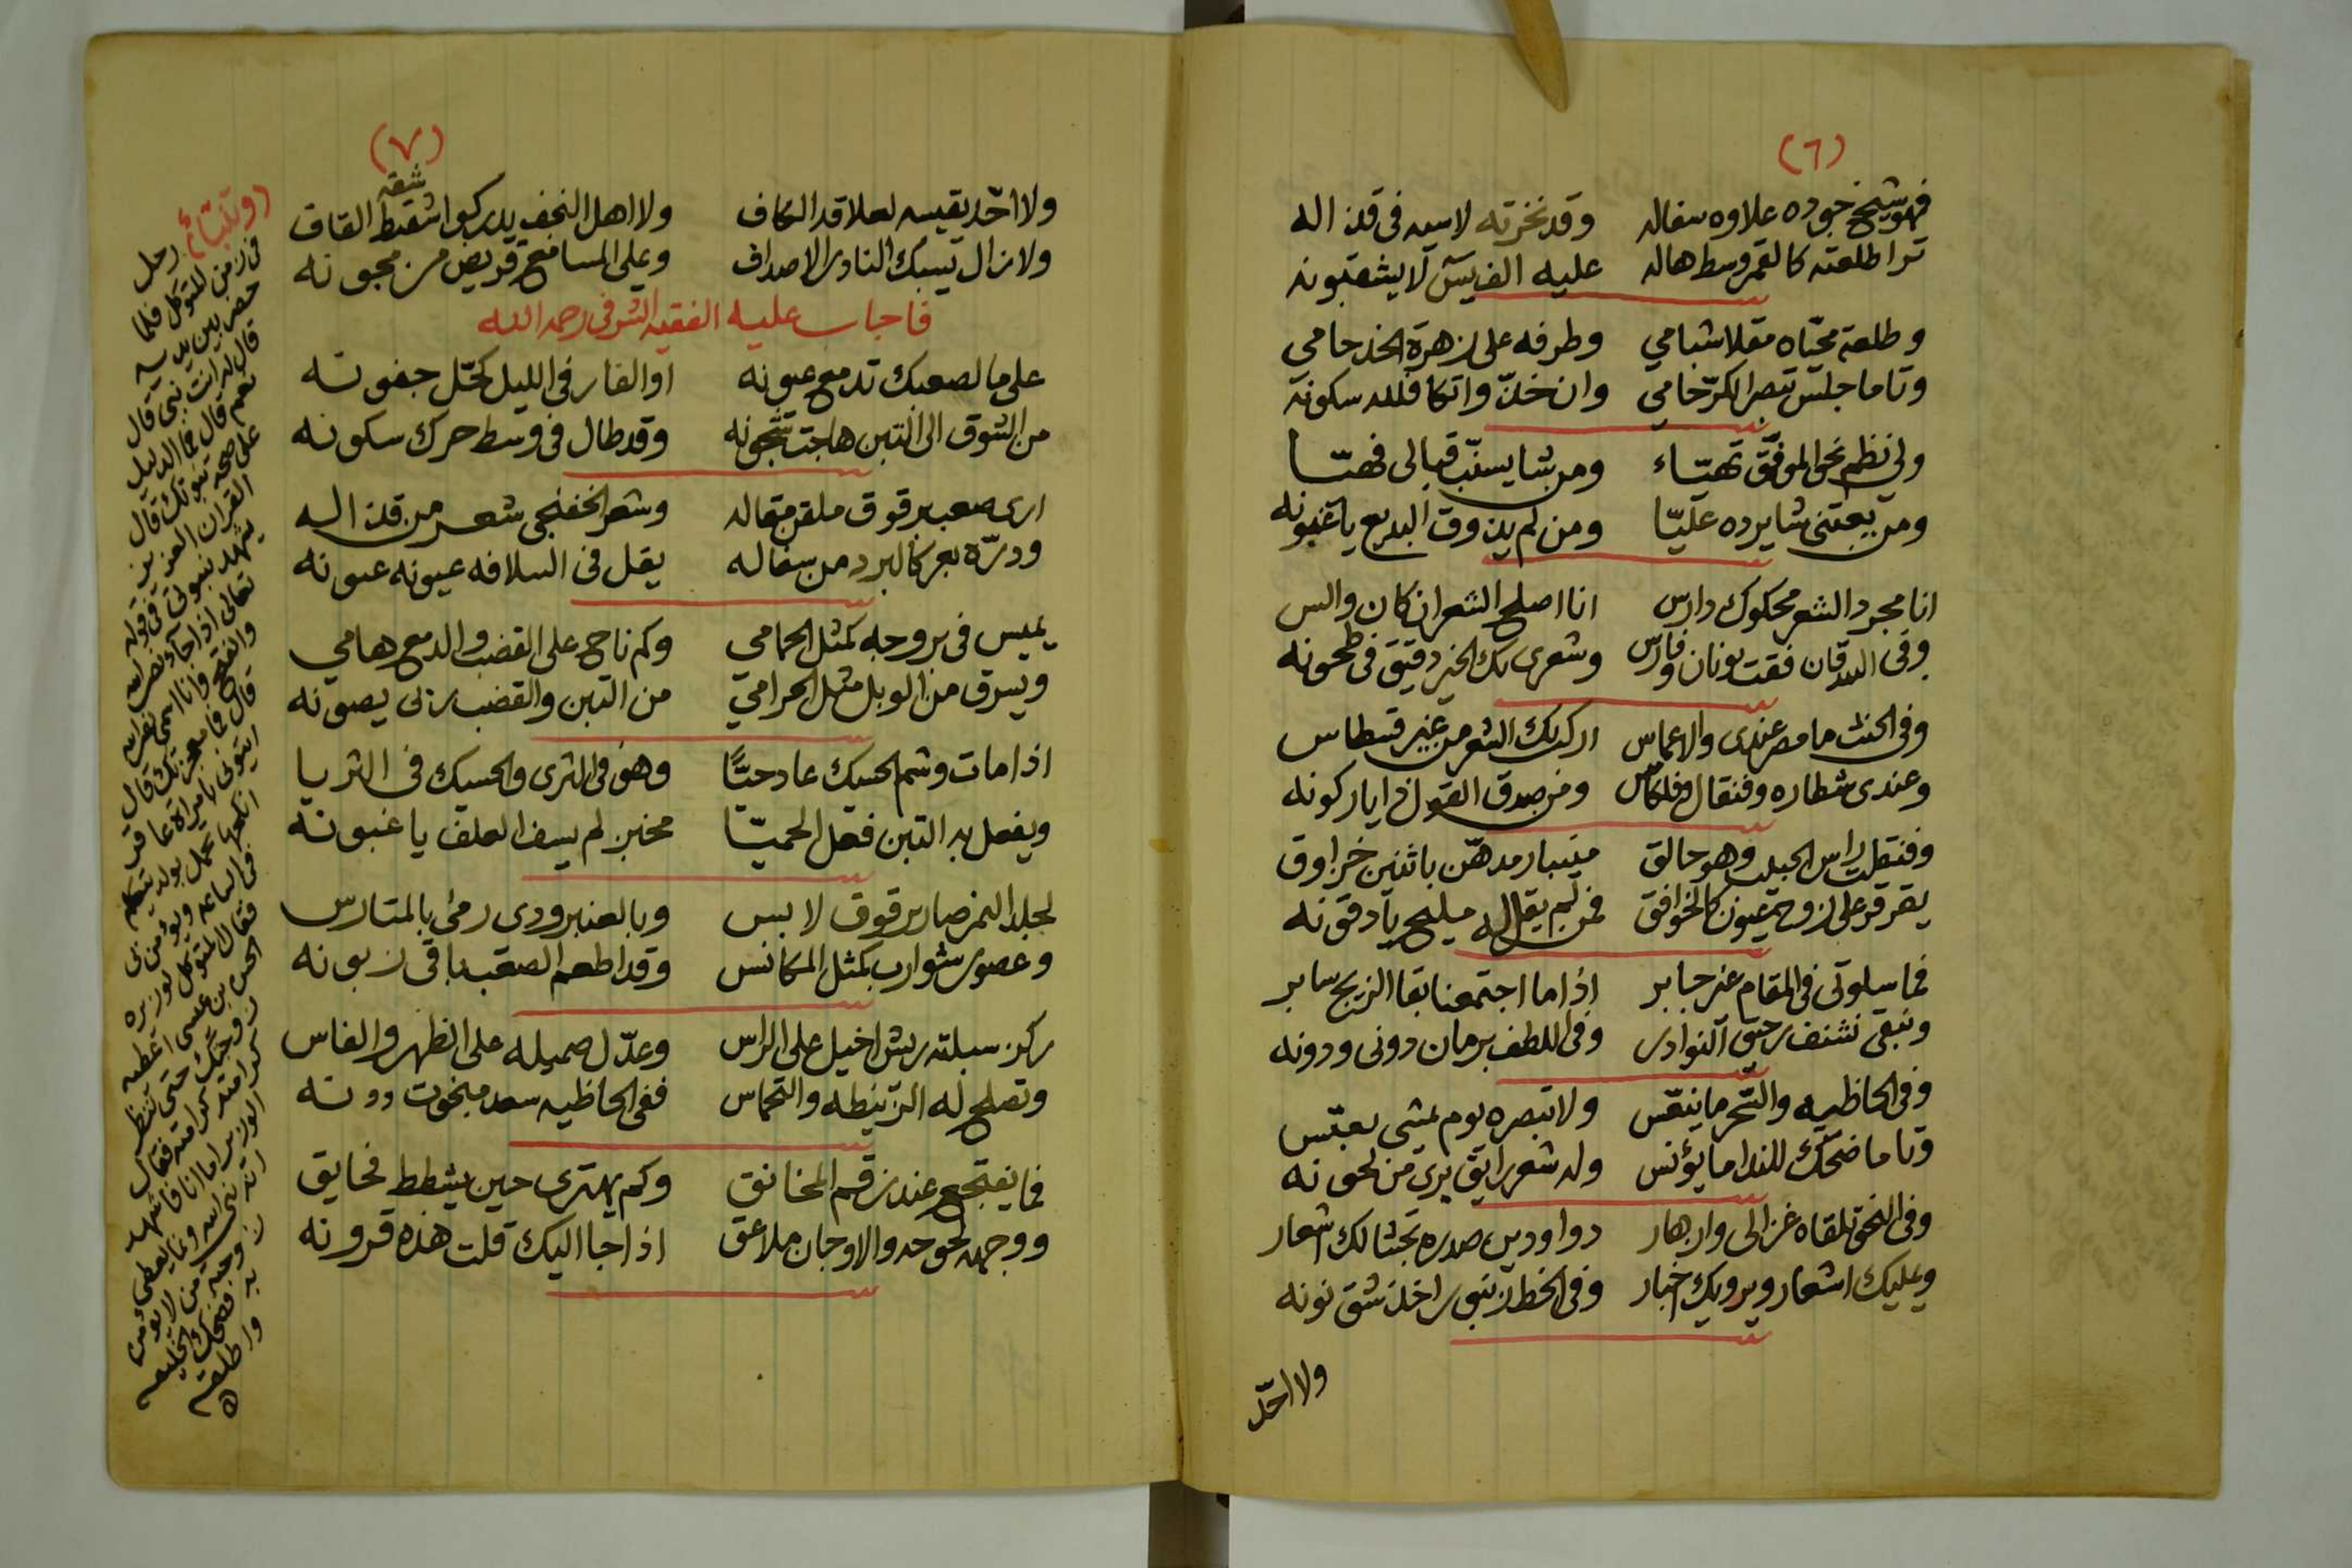 (٦)
فهو شيخ جوده علاوه سفاله وقد نخرته لاسيه في قذ اله
ترا طلعته كالقمر وسط هاله عليه الف يسّ لا يشقبونه
وطلعة محيّاه مقلا شبامي وطرفه على زهرة الخد حامي
وتا ما جلس تبصر الكرّ حامي وان خذّ واتكا فلله سكونه
ولي نظم نحو الموفّق تهيّاء ومن شا يسنّب قبالي فهيّا
ومن يعتني شا يرده عليّا ومن لم يذوق البديع يا غبونه
انا مجرد الشعر محكوك دارس انا اصلح الشعر ان كان والس
وفي الدقان فقت يونان وفارس وشعري بك الخبز دقيق في طحونه
وفي الخنث ما مصر عندي والاعماس اركب لك الشعر من غير قسطاس
وعندي شطاره وفنقال وفلكاس ومن صدق القول ذا يا ركونه
وفنقلت راس الجيلب وهو حالق مبيبار مدهّن باثنين خراوق
يقرقر على زوجه عيون كالخوافق فمن لم يقل له مليح يا دقونه
فما سلوتي في المقام غير جابر اذا ما اجتمعنا بقا الزبج سابر
ونبقى نشنف رحيق النوادر وفي اللطف برمان دوني ودونه
وفي الحاظيه والتّحر ما ينفّس ولا تبصره يوم يمشي يعبّس
وتا ما ضحك للندا ما يؤنس وله شعر رايق بري من لحونه
وفي النحو تلقاه غزالي وازهار دواوين صدره تجتنا لك اشعار
ويمليك اشعار ويرويك اخبار وفي الخط زنبور اخذ شق نونه
ولا احّد
(٧)
شقه
ولا احّد يقيسه لعلاقد الكاف ولا اهل النجف يدركوا شقط القاف
ولا زال يسبك النادر الاصداف وعلى المسامع قريض من مجونه
فاجاب عليه الفقيه الشرفي رحمه الله
على ما لصعبك تدمع عيونه او الفار في الليل كحّل جفونه
من الشوق الى التبن هاجت شجونه وقد طال في وسط حرك سكونه
ارى صعب برقوق ملقن مقاله وشعر الخفنجي شعر من قذ اله
ودرّه بعر كالبرد من سفاله يقل في السلافه عيونه عيونه
يميس في بروجه كمثل الحمامي وكم ناح على القضب والدمع هامي
ويسرق من الوبل مثل الحرامي من التبن والقضب زلي يصونه
اذا مات وشم الحسيك عاد حيًّا وهو في الثرى والحسيك في الثريا
ويفعل به التبن فعل الحميّا مخبر لم يسف العلف يا غبونه
لجلد النمر صار برقوق لابس وبالعنبرودي رمي بالمتارس
وعصور شوارب كمثل المكانس وقد اطعم الصقب باقي زبونه
ركز سبلته ريش اخيل على الراس وعدّل صميله على الظهر والفاس
وتصلح له الزنيطه والتحماس ففي الحاظيه سعد مبخوت دونه
فما يفتجع عند زقم المخانق وكم يهتري حين يشطط فحايق
ووجهه لحوحه والاوجان ملاعق اذا جا اليك قلت هذه قرونه
(وتنبّاء) رجل
في زمن المتوكل فلما
حضر بين يديه
قال له انت نبي قال
نعم قال فما الدليل
على صحة نبوتك قال
القران العزيز
يشهد بنبوتي في قوله
تعالى اذا جاء نصر الله
والفتح وانا اسمي نصر الله
قال فما معجزتك قال
ايتوني بامراة عاقر
انكحها تحمل بولد يتكلم
في الساعه ويؤمن بي
فقال المتوكل لوزيره
الحسن بن عيسى اعطيه
زوجتك حتى تنظر
كرامته فقال
الوزير اما انا فاشهد
انه نبي الله وانما يعطي
زوجته من لا يؤمن
به فضحك الخليفه
واطلقه